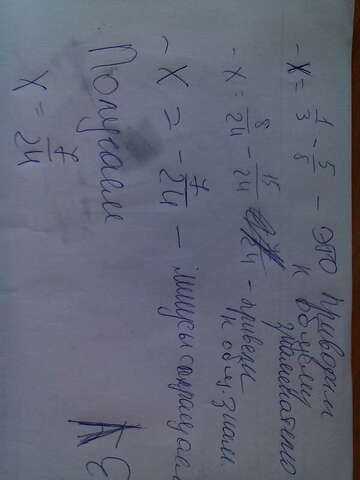 -x = 1/3 - 5/8 - это приводим
к общему
знаменателю
-x = 8/24 - 15/24 - привели
к общ. знам.
-x = - 7/24 - минусы сокращаем
Получаем
x = 7/24